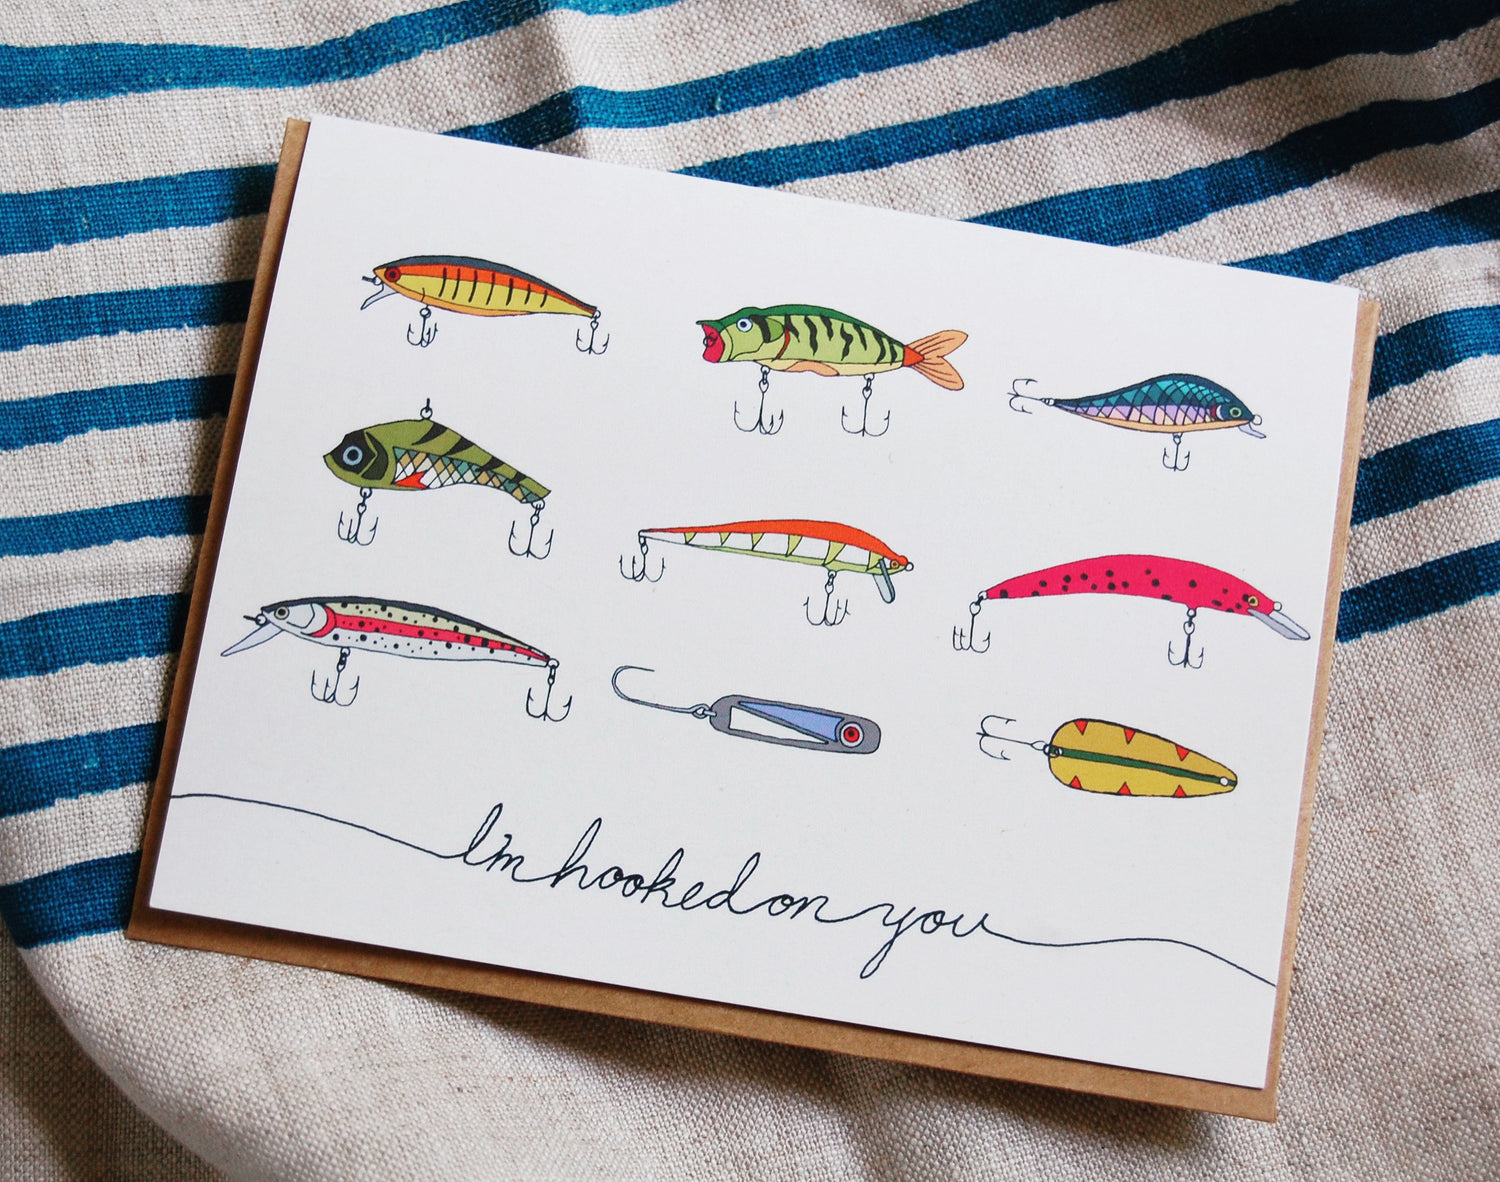 I'm hooked on you